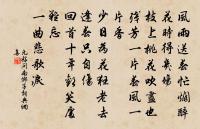 風雨送春忙爛醉
花時得幾場
枝上桃花吹盡也
殘芳一片春風一
片香
少日為花狂老去
逢春只自傷
回首十年歡笑處
難忘
一曲悲歌淚
元好問南鄉子詞